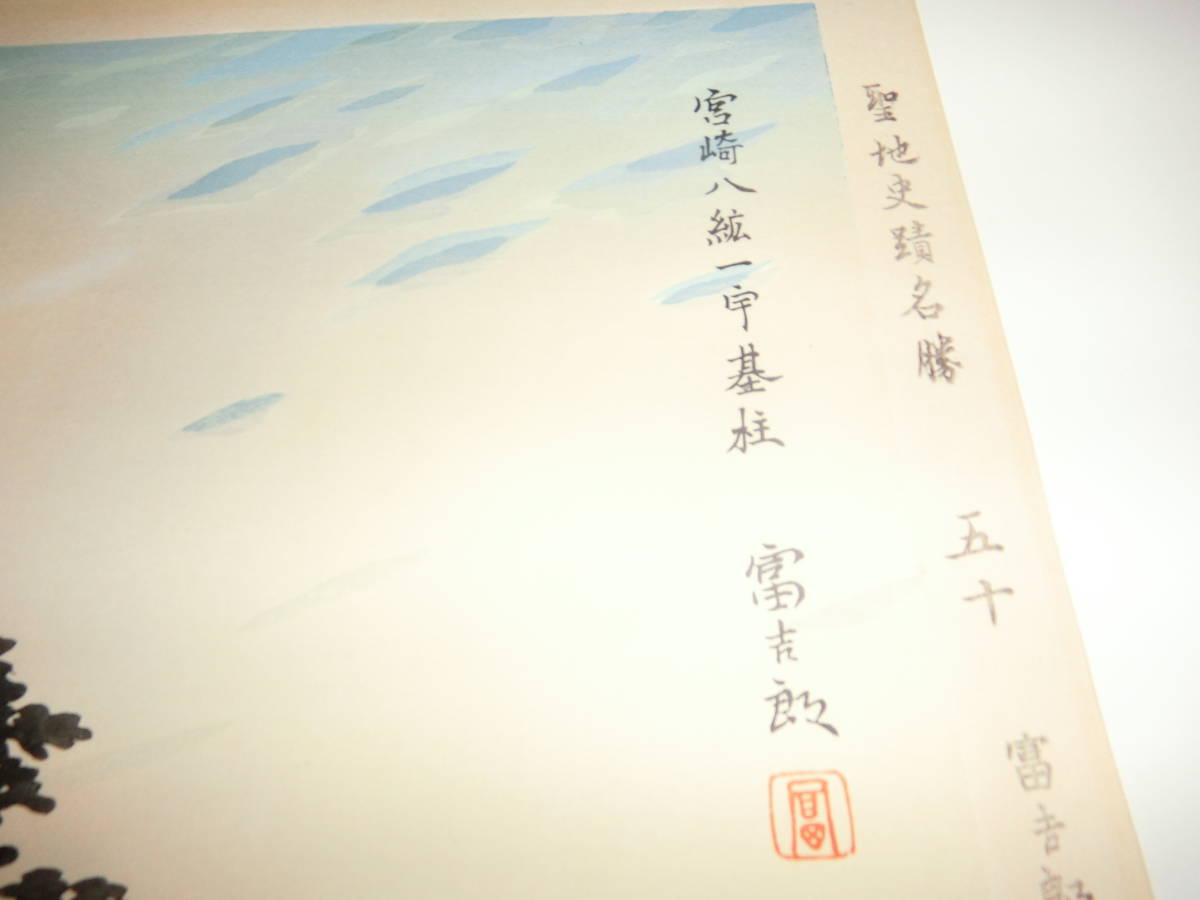 聖地史蹟名勝 五十 富吉郎
宮崎八紘一宇基柱 富吉郎